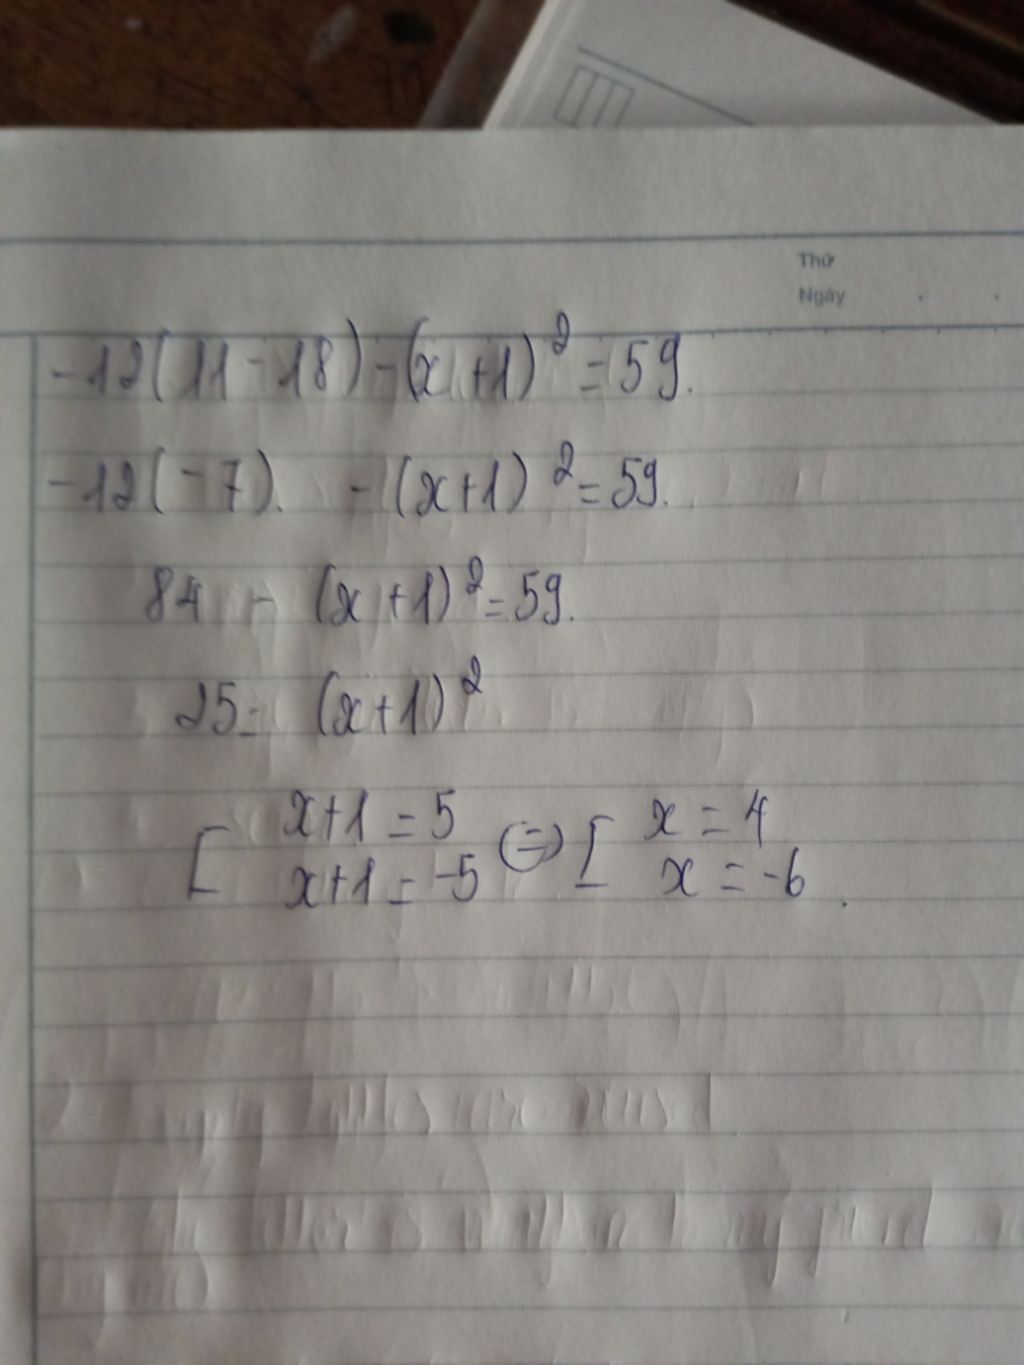 Thứ
Ngày
-12(11-18)-(x+1)²=59.
-12(-7). -(x+1)²=59.
84 - (x+1)²=59.
25= (x+1)²
[ x+1=5 ⇔ [ x=4
x+1=-5 x=-6.